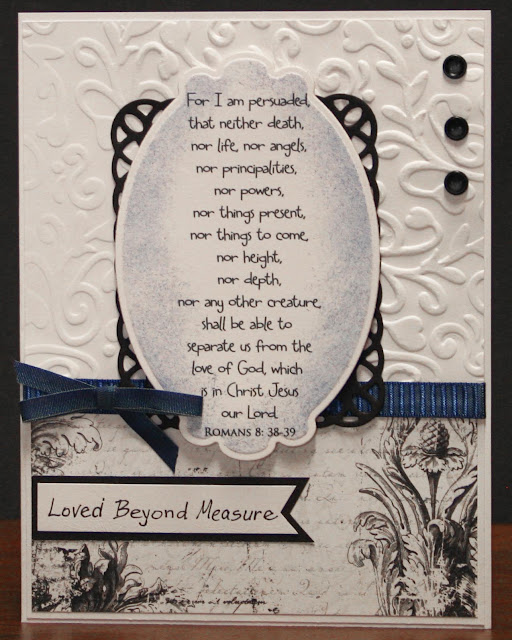 For I am persuaded,
that neither death,
nor life, nor angels,
nor principalities,
nor powers,
nor things present,
nor things to come,
nor height,
nor depth,
nor any other creature,
shall be able to
separate us from the
love of God, which
is in Christ Jesus
our Lord.
ROMANS 8: 38-39
Loved Beyond Measure